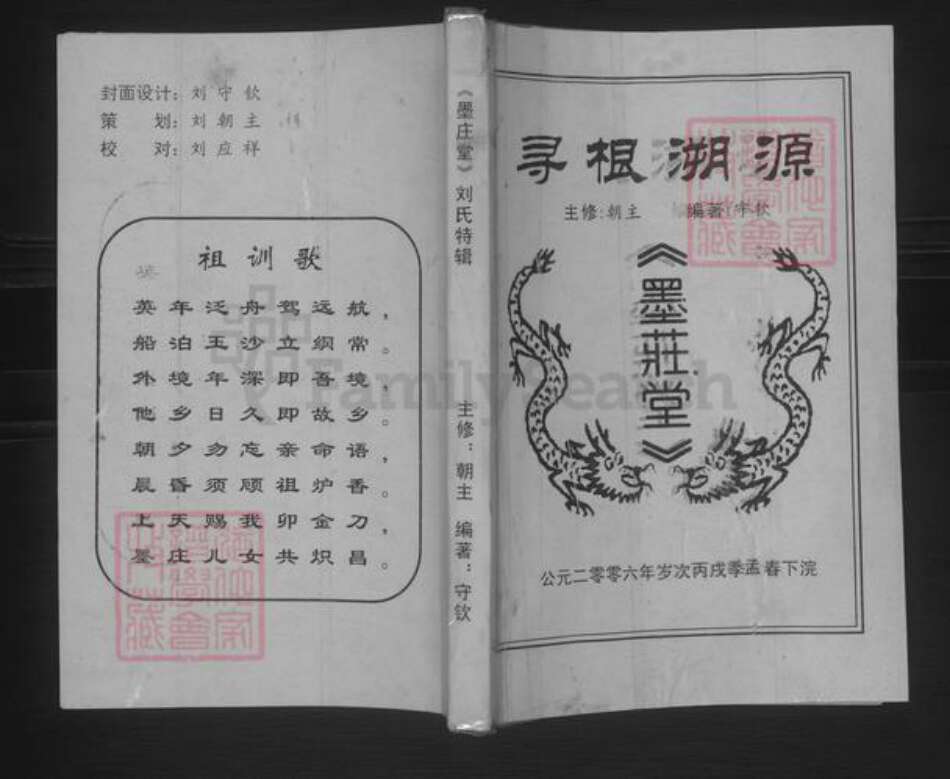 封面设计：刘守钦
策 划：刘朝主
校 对：刘应祥
祖训歌
英年泛舟驾远航，
船泊玉沙立纲常。
外境年深即吾境，
他乡日久即故乡。
朝夕勿忘亲命语，
晨昏须顾祖炉香。
上天赐我卯金刀，
墨庄儿女共炽昌。
《墨庄堂》刘氏特辑
主修：朝主 编著：守钦
寻根溯源
主修:朝主 编著:守钦
《墨莊堂》
公元二零零六年岁次丙戌季孟春下浣
FamilySearch